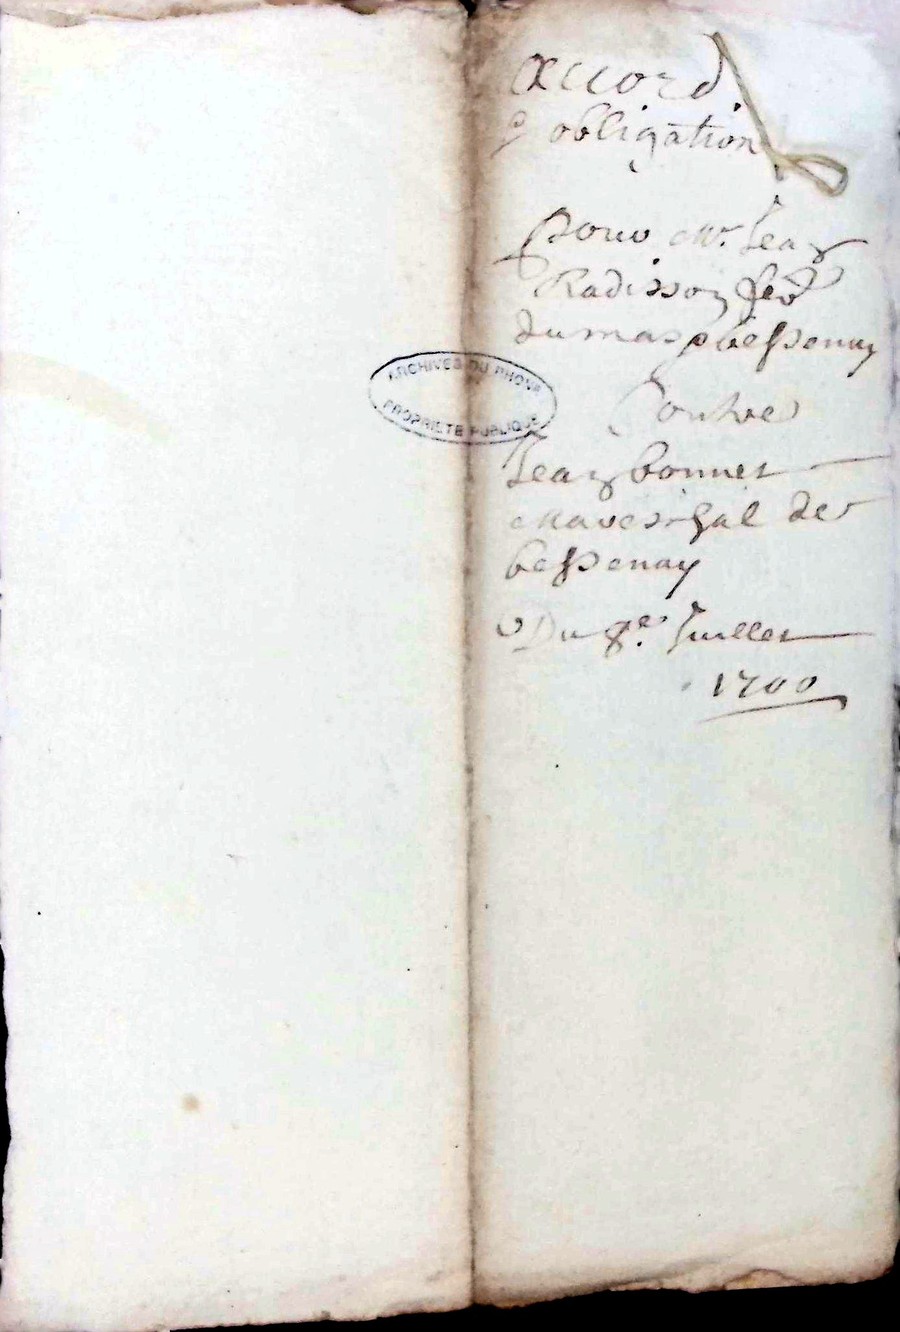 Accord
& obligation
pour Mr. Jean
Radisson
dumas bessenay
Contre
Jean bonnet
Mareschal de
bessenay
Du Juillet
1700
ARCHIVES DU RHONE
PROPRIETE PUBLIQUE